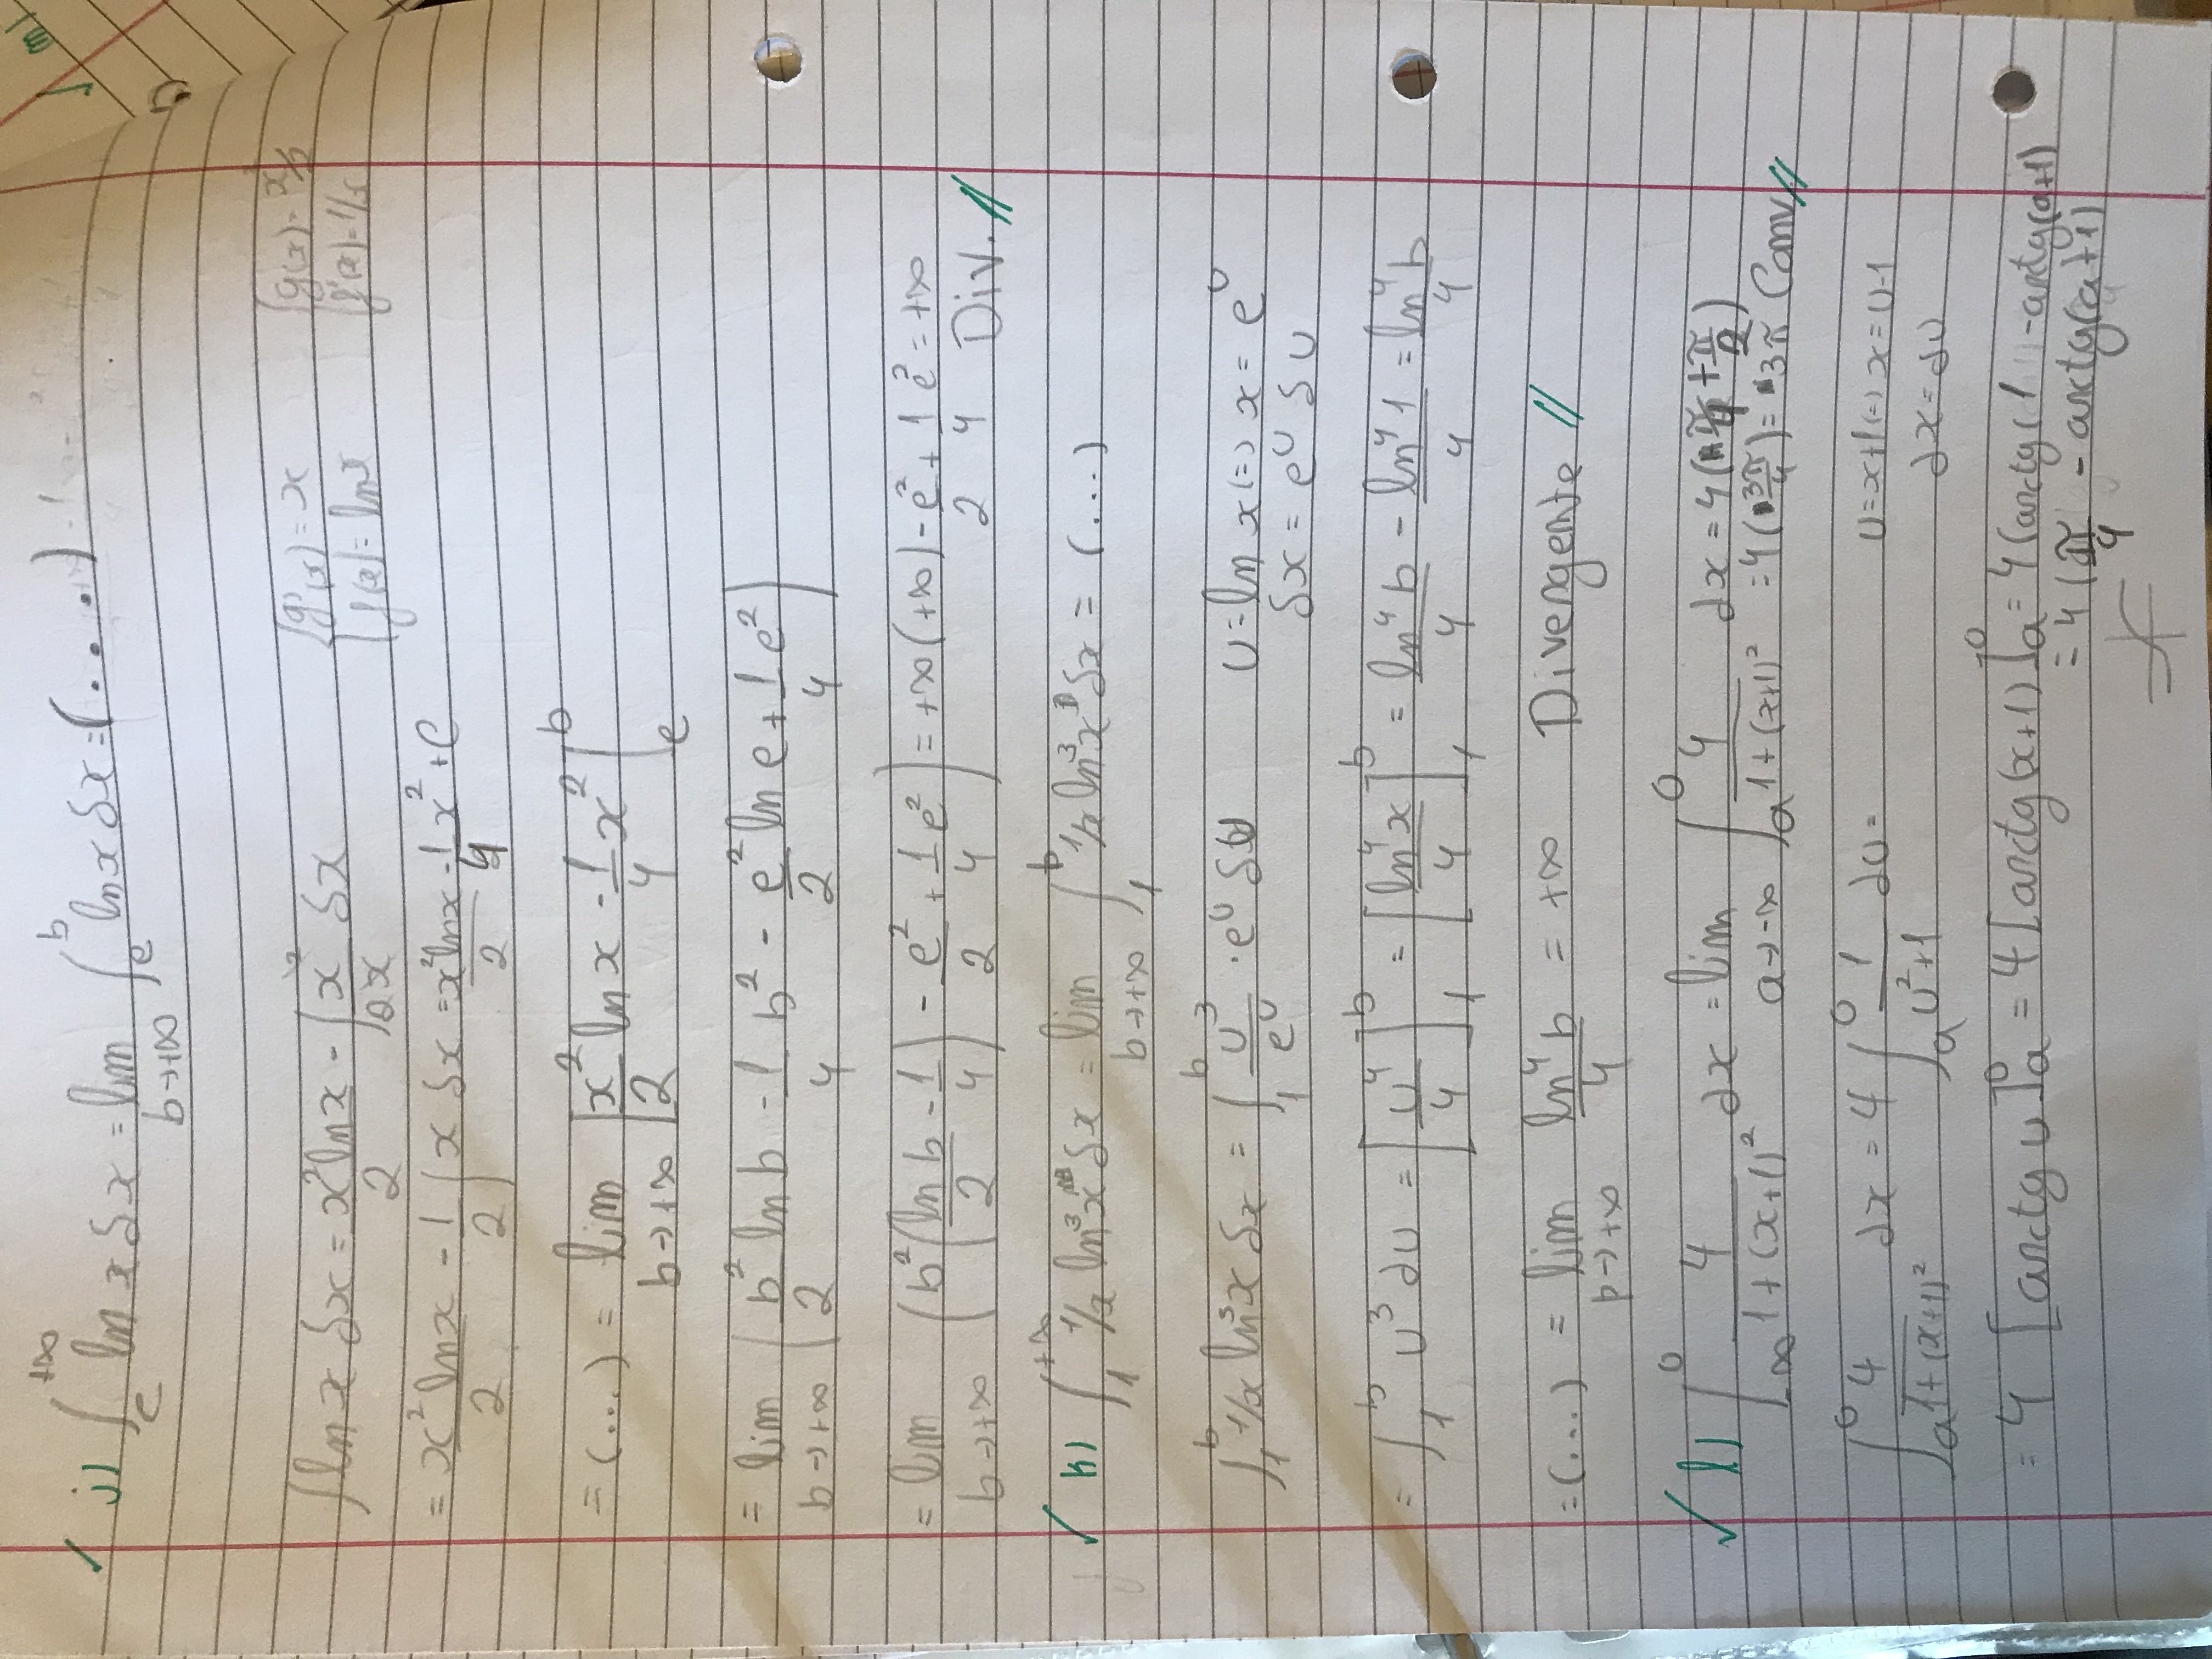 ✓ j) ∫_e^{+∞} ln x δx = lim_{b→+∞} ∫_e^b ln x δx = (....)
∫ ln x δx = x² ln x / 2 - ∫ x² / 2x δx    { g'(x) = x    { g(x) = x²/2
{ f(x) = ln x    { f'(x) = 1/x
= x² ln x / 2 - 1/2 ∫ x δx = x² ln x / 2 - 1/4 x² + C
= (...) = lim_{b→+∞} [ x²/2 ln x - 1/4 x² ]_e^b
= lim_{b→+∞} ( b²/2 ln b - 1/4 b² - e²/2 ln e + 1/4 e² )
= lim_{b→+∞} ( b² ( ln b / 2 - 1/4 ) - e²/2 + 1/4 e² ) = +∞ (+∞) - e²/2 + 1/4 e² = +∞
Div. //
✓ k) ∫_1^{+∞} 1/x ln³ x δx = lim_{b→+∞} ∫_1^b 1/x ln³ x δx = (...)
∫_1^b 1/x ln³ x δx = ∫_1^b u³ / e^u · e^u δu    u = ln x (=) x = e^u
δx = e^u δu
= ∫_1^b u³ du = [ u⁴/4 ]_1^b = [ ln⁴ x / 4 ]_1^b = ln⁴ b / 4 - ln⁴ 1 / 4 = ln⁴ b / 4
= (...) = lim_{b→+∞} ln⁴ b / 4 = +∞    Divergente //
✓ l) ∫_{-∞}^0 4 / (1+(x+1)²) dx = lim_{a→-∞} ∫_a^0 4 / (1+(x+1)²) dx = 4 ( π/4 + π/2 )
= 4 ( 3π/4 ) = 3π Conv. //
∫_a^0 4 / (1+(x+1)²) dx = 4 ∫_a^0 1 / (u²+1) du =    u = x+1 (=) x = u-1
dx = du
= 4 [ arctg u ]_a^0 = 4 [ arctg (x+1) ]_a^0 = 4 (arctg (1 - arctg(a+1)
= 4 ( π/4 - arctg(a+1)